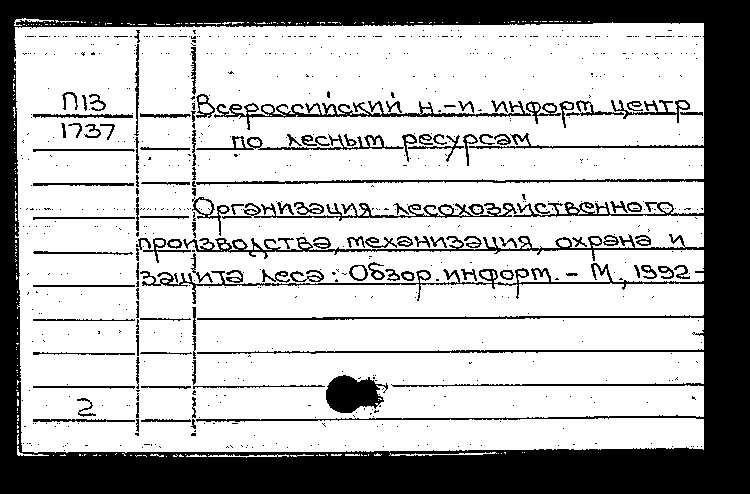 П13
1737
Всероссийский н.-и. информ. центр
по лесным ресурсам
Организация лесохозяйственного
производства, механизация, охрана и
защита леса: Обзор. информ. - М., 1992-
2